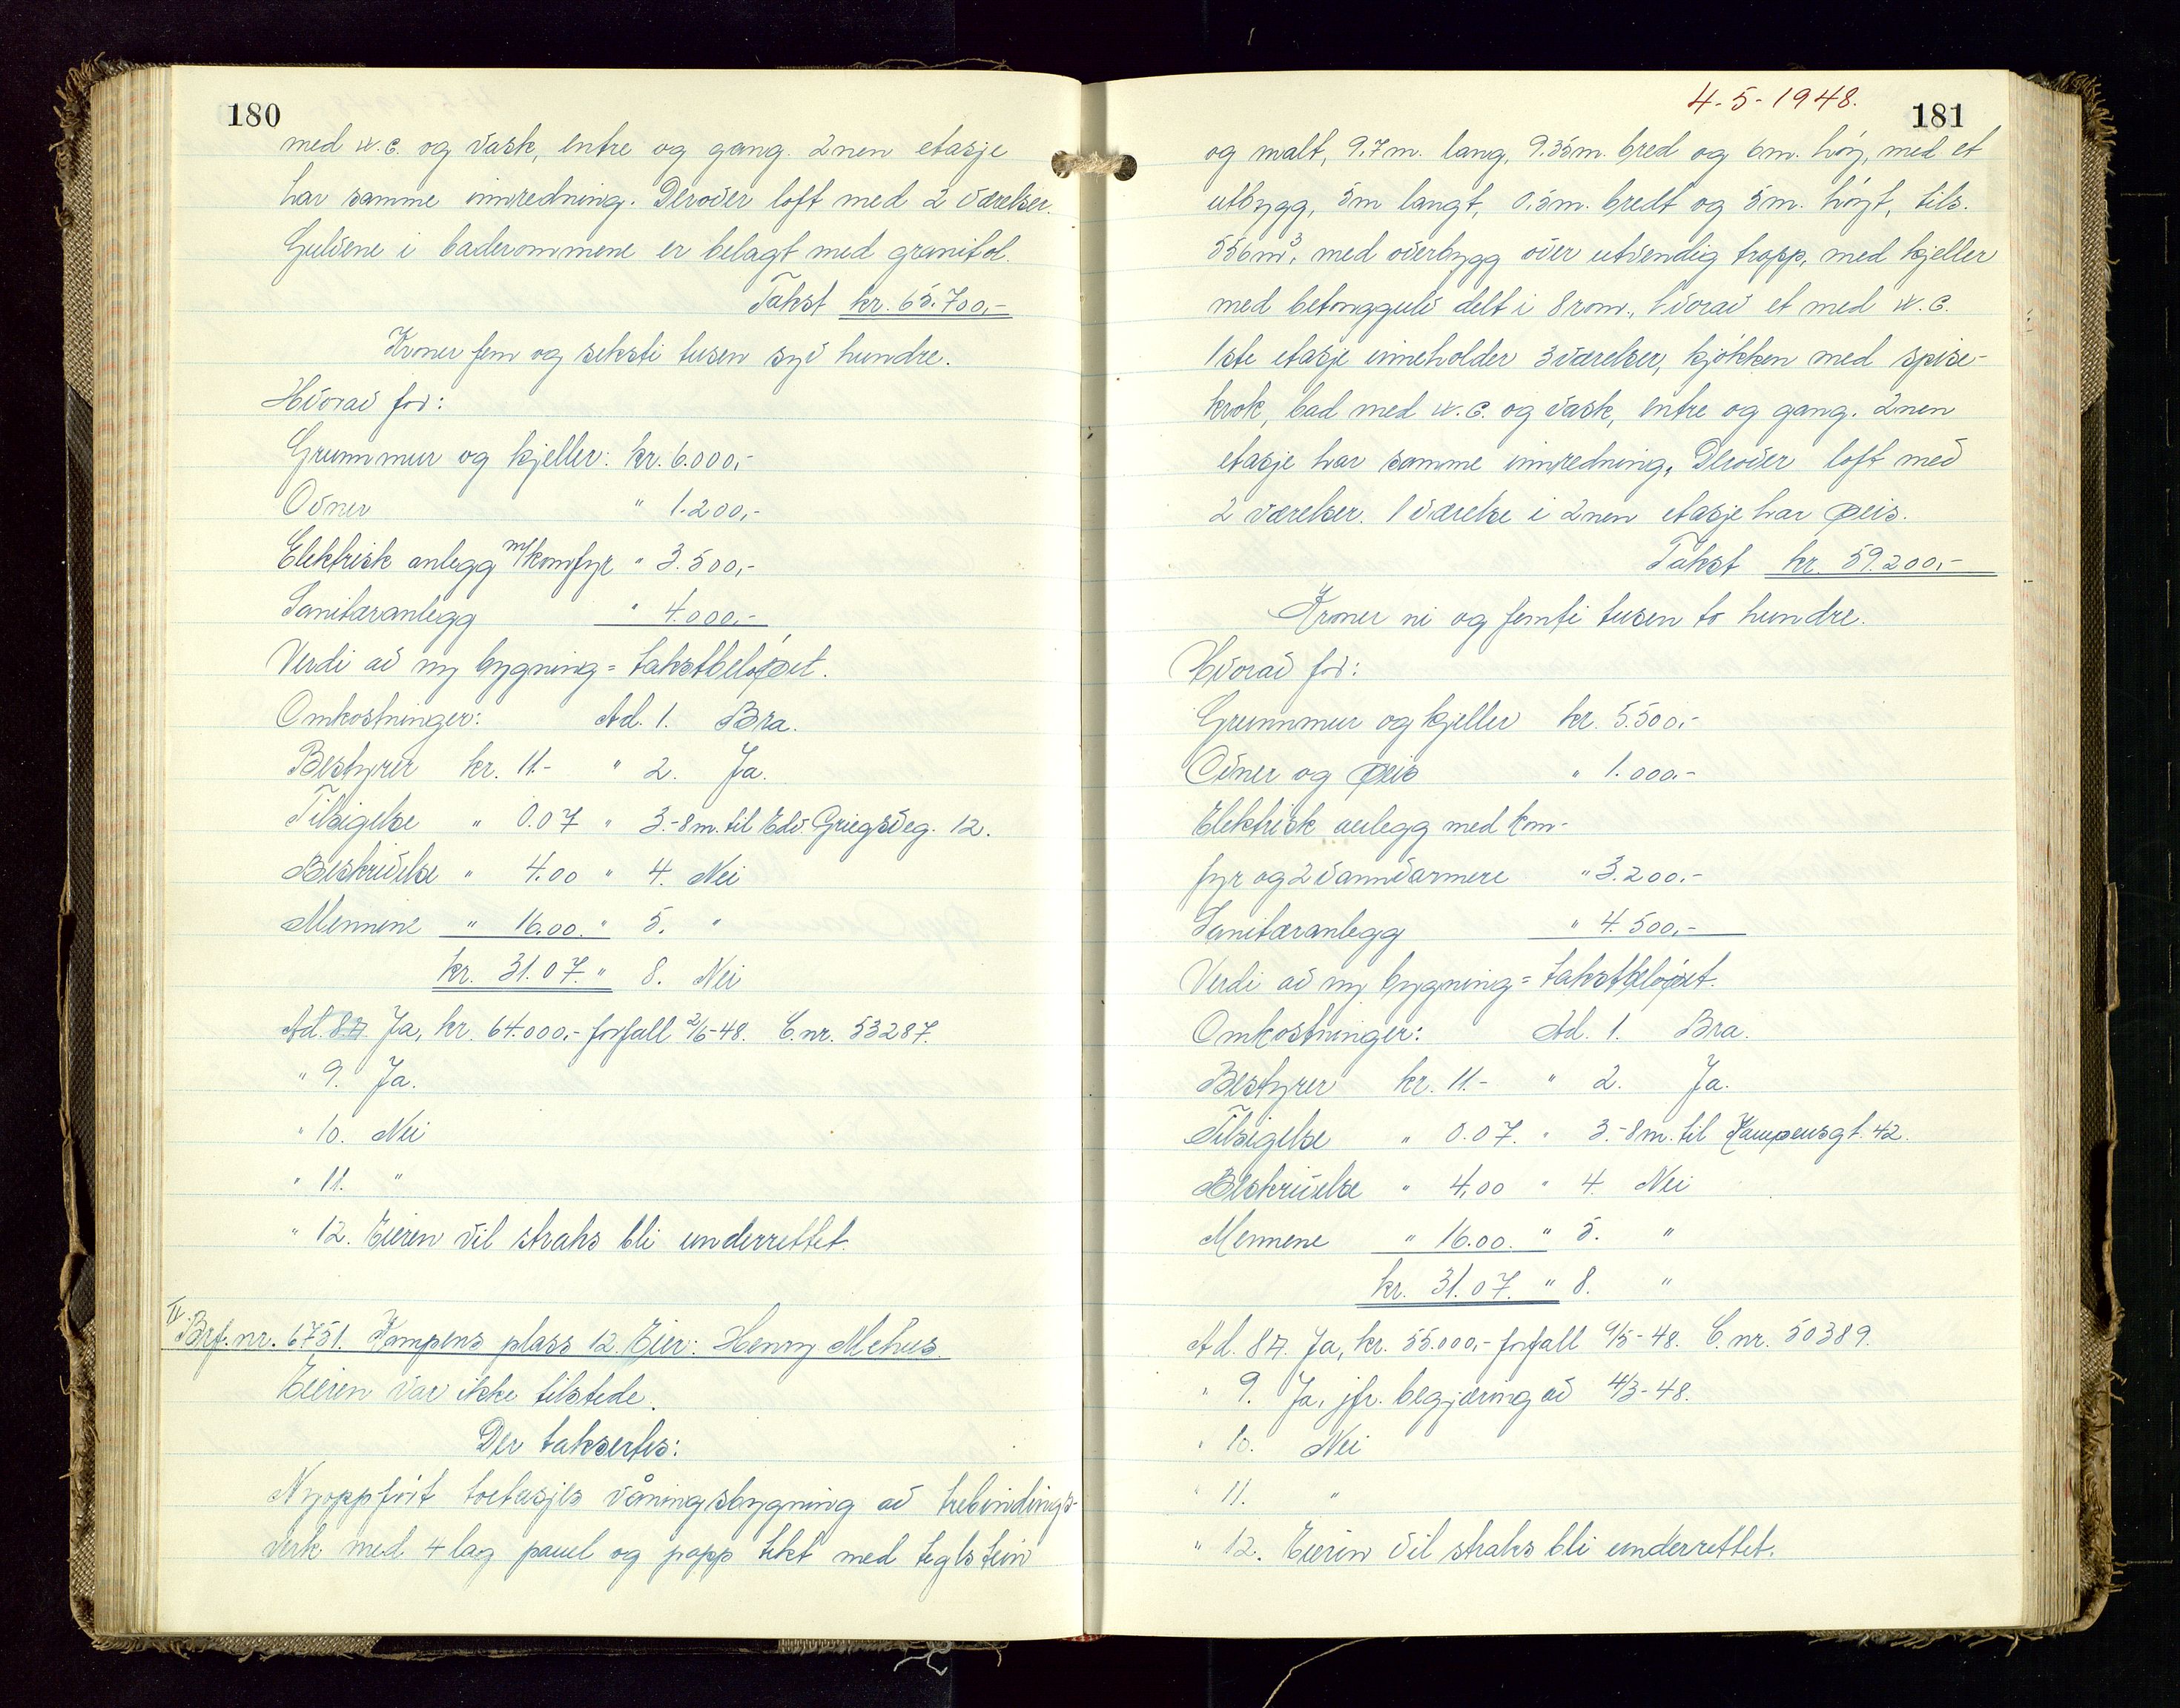 180
med W.C. og vask, entre og gang. 2nen etasje
har samme innredning. Derover loft med 2 værelser.
Gulvene i baderommene er belagt med granitol.
Takst kr. 65.700,-
Kroner fem og seksti tusen syv hundre.
Hvorav for:
Grunnmur og kjeller: kr. 6.000,-
Ovner " 1.200,-
Elektrisk anlegg m/komfyr " 3.500,-
Sanitæranlegg " 4.000,-
Verdi av ny bygning = takstbeløpet.
Omkostninger: Ad. 1. Bra.
Bestyrer kr. 11.- " 2. Ja.
Tilsigelse " 0.07 " 3.-8m. til Edv. Griegsveg. 12.
Beskrivelse " 4.00 " 4. Nei
Mennene " 16.00. " 5. "
kr. 31.07. " 8. Nei
Ad. 8a. Ja, kr. 64.000,- forfall 2/6-48. C.nr. 53287.
" 9. Ja.
" 10. Nei
" 11. "
" 12. Eieren vil straks bli underrettet.
IV. Brf.nr. 6751. Kampens plass 12. Eier: Henry Mehus.
Eieren var ikke tilstede.
Der taksertes:
Nyoppført toetasjes våningsbygning av trebindings-
verk med 4 lag panel og papp tekt med teglstein
4-5-1948.
181
og malt, 9.7m. lang, 9.35m. bred og 6m. høy, med et
utbygg, 5m langt, 0.5m. bredt og 5m. høyt, tils.
556m³, med overbygg over utvendig trapp, med kjeller
med betonggulv delt i 8 rom., hvorav et med W.C.
1ste etasje inneholder 3 værelser, kjøkken med spise-
krok, bad med W.C. og vask, entre og gang. 2nen
etasje har samme innredning. Derover loft med
2 værelser. 1 værelse i 2nen etasje har peis.
Takst kr. 59.200,-
Kroner ni og femti tusen to hundre.
Hvorav for:
Grunnmur og kjeller kr. 5.500,-
Ovner og peis " 1.000.-
Elektrisk anlegg med kom-
fyr og 2 vannvarmere " 3.200.-
Sanitæranlegg " 4.500,-
Verdi av ny bygning = takstbeløpet.
Omkostninger: Ad. 1. Bra.
Bestyrer kr. 11.- " 2. Ja.
Tilsigelse " 0.07. " 3.-8m. til Kampensgt. 42.
Beskrivelse " 4.00 " 4. Nei
Mennene " 16.00. " 5. "
kr. 31.07. " 8. "
Ad. 8a. Ja, kr. 55.000,- forfall /5-48. C.nr. 50389.
" 9. Ja, jfr. begjæring av 4/3-48.
" 10. Nei
" 11. "
" 12. Eieren vil straks bli underrettet.